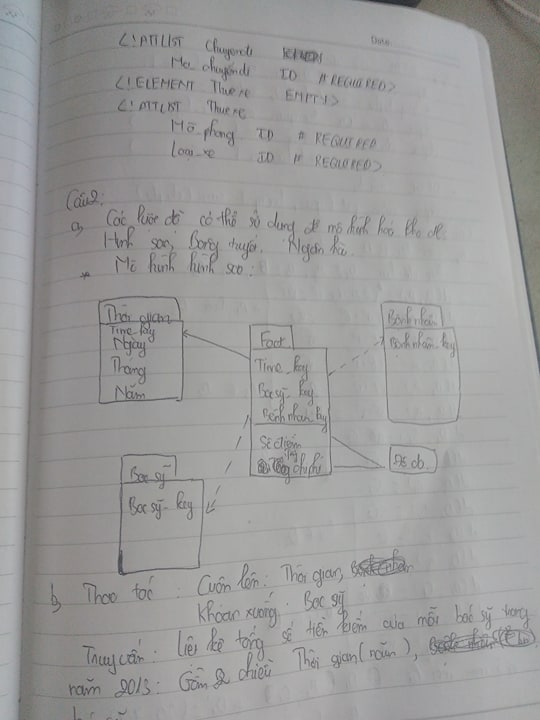 <!ATTLIST Chuyende
Ma_chuyende ID #REQUIRED>
<!ELEMENT Thuexe EMPTY>
<!ATTLIST Thuexe
Mã_phong ID # REQUIRED
Loai_xe ID # REQUIRED>
Câu 2:
a, Các lược đồ có thể sử dụng để mô hình hoá kho dl:
Hình sao, Bông tuyết, Ngân hà.
* Mô hình hình sao:
Thời gian
Time_key
Ngày
Tháng
Năm
Fact
Time_key
Bacsỹ_key
Bệnhnhân_key
Số đếm
chi phí
Bệnh nhân
Bệnhnhân_key
Độ đo.
Bác sỹ
Bácsỹ_key
b, Thao tác: Cuộn lên: Thời gian,
Khoan xuống: Bác sỹ
Truy vấn: Liệt kê tổng số tiền kiếm của mỗi bác sỹ trong
năm 2013: Gồm 2 chiều Thời gian (năm),
bác sỹ